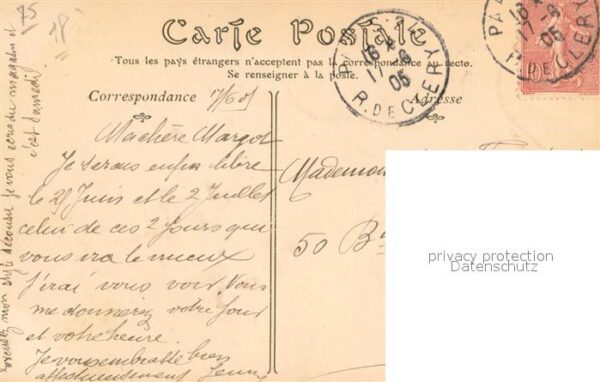 75
18
Carte Postale
Tous les pays étrangers n'acceptent pas la correspondance au recto.
Se renseigner à la poste.
Correspondance
Adresse
PARIS
16
17-6
05
R. DE CLERY
PA
16
17-6
05
R. DE CLERY
7/6 05
Ma chère Margot
Je serais enfin libre
le 28 Juin et le 2 Juillet
celui de ces 2 jours qui
vous ira le mieux
j'irai vous voir. Vous
me donnerez votre jour
et votre heure.
Je vous embrasse bien
affectueusement
Mademoi
50 Bd
Excusez mon style décousu je vous écris du magasin et
c'est Samedi.
privacy protection
Datenschutz